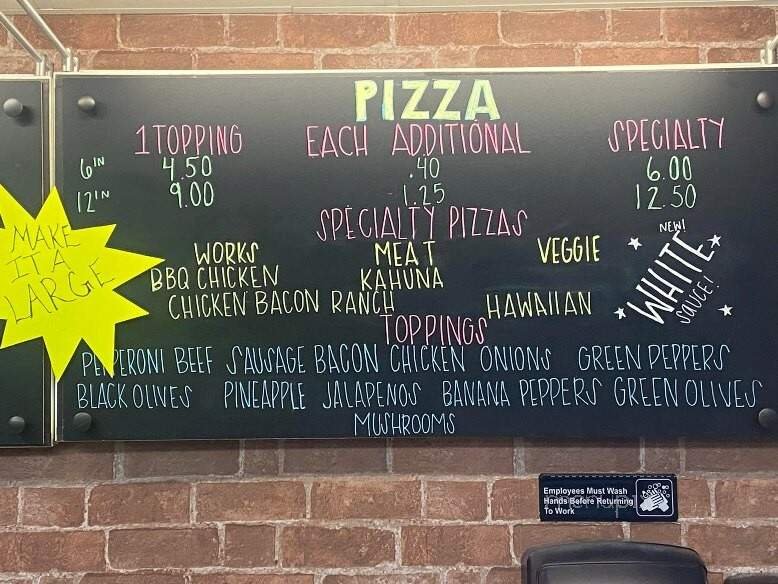 PIZZA
1 TOPPING EACH ADDITIONAL SPECIALTY
6IN 4.50 .40 6.00
12IN 9.00 1.25 12.50
SPECIALTY PIZZAS
WORKS MEAT VEGGIE
BBQ CHICKEN KAHUNA
CHICKEN BACON RANCH HAWAIIAN
NEW!
WHITE
SAUCE!
MAKE
IT A
LARGE
TOPPINGS
PEPPERONI BEEF SAUSAGE BACON CHICKEN ONIONS GREEN PEPPERS
BLACK OLIVES PINEAPPLE JALAPENOS BANANA PEPPERS GREEN OLIVES
MUSHROOMS
Employees Must Wash
Hands Before Returning
To Work